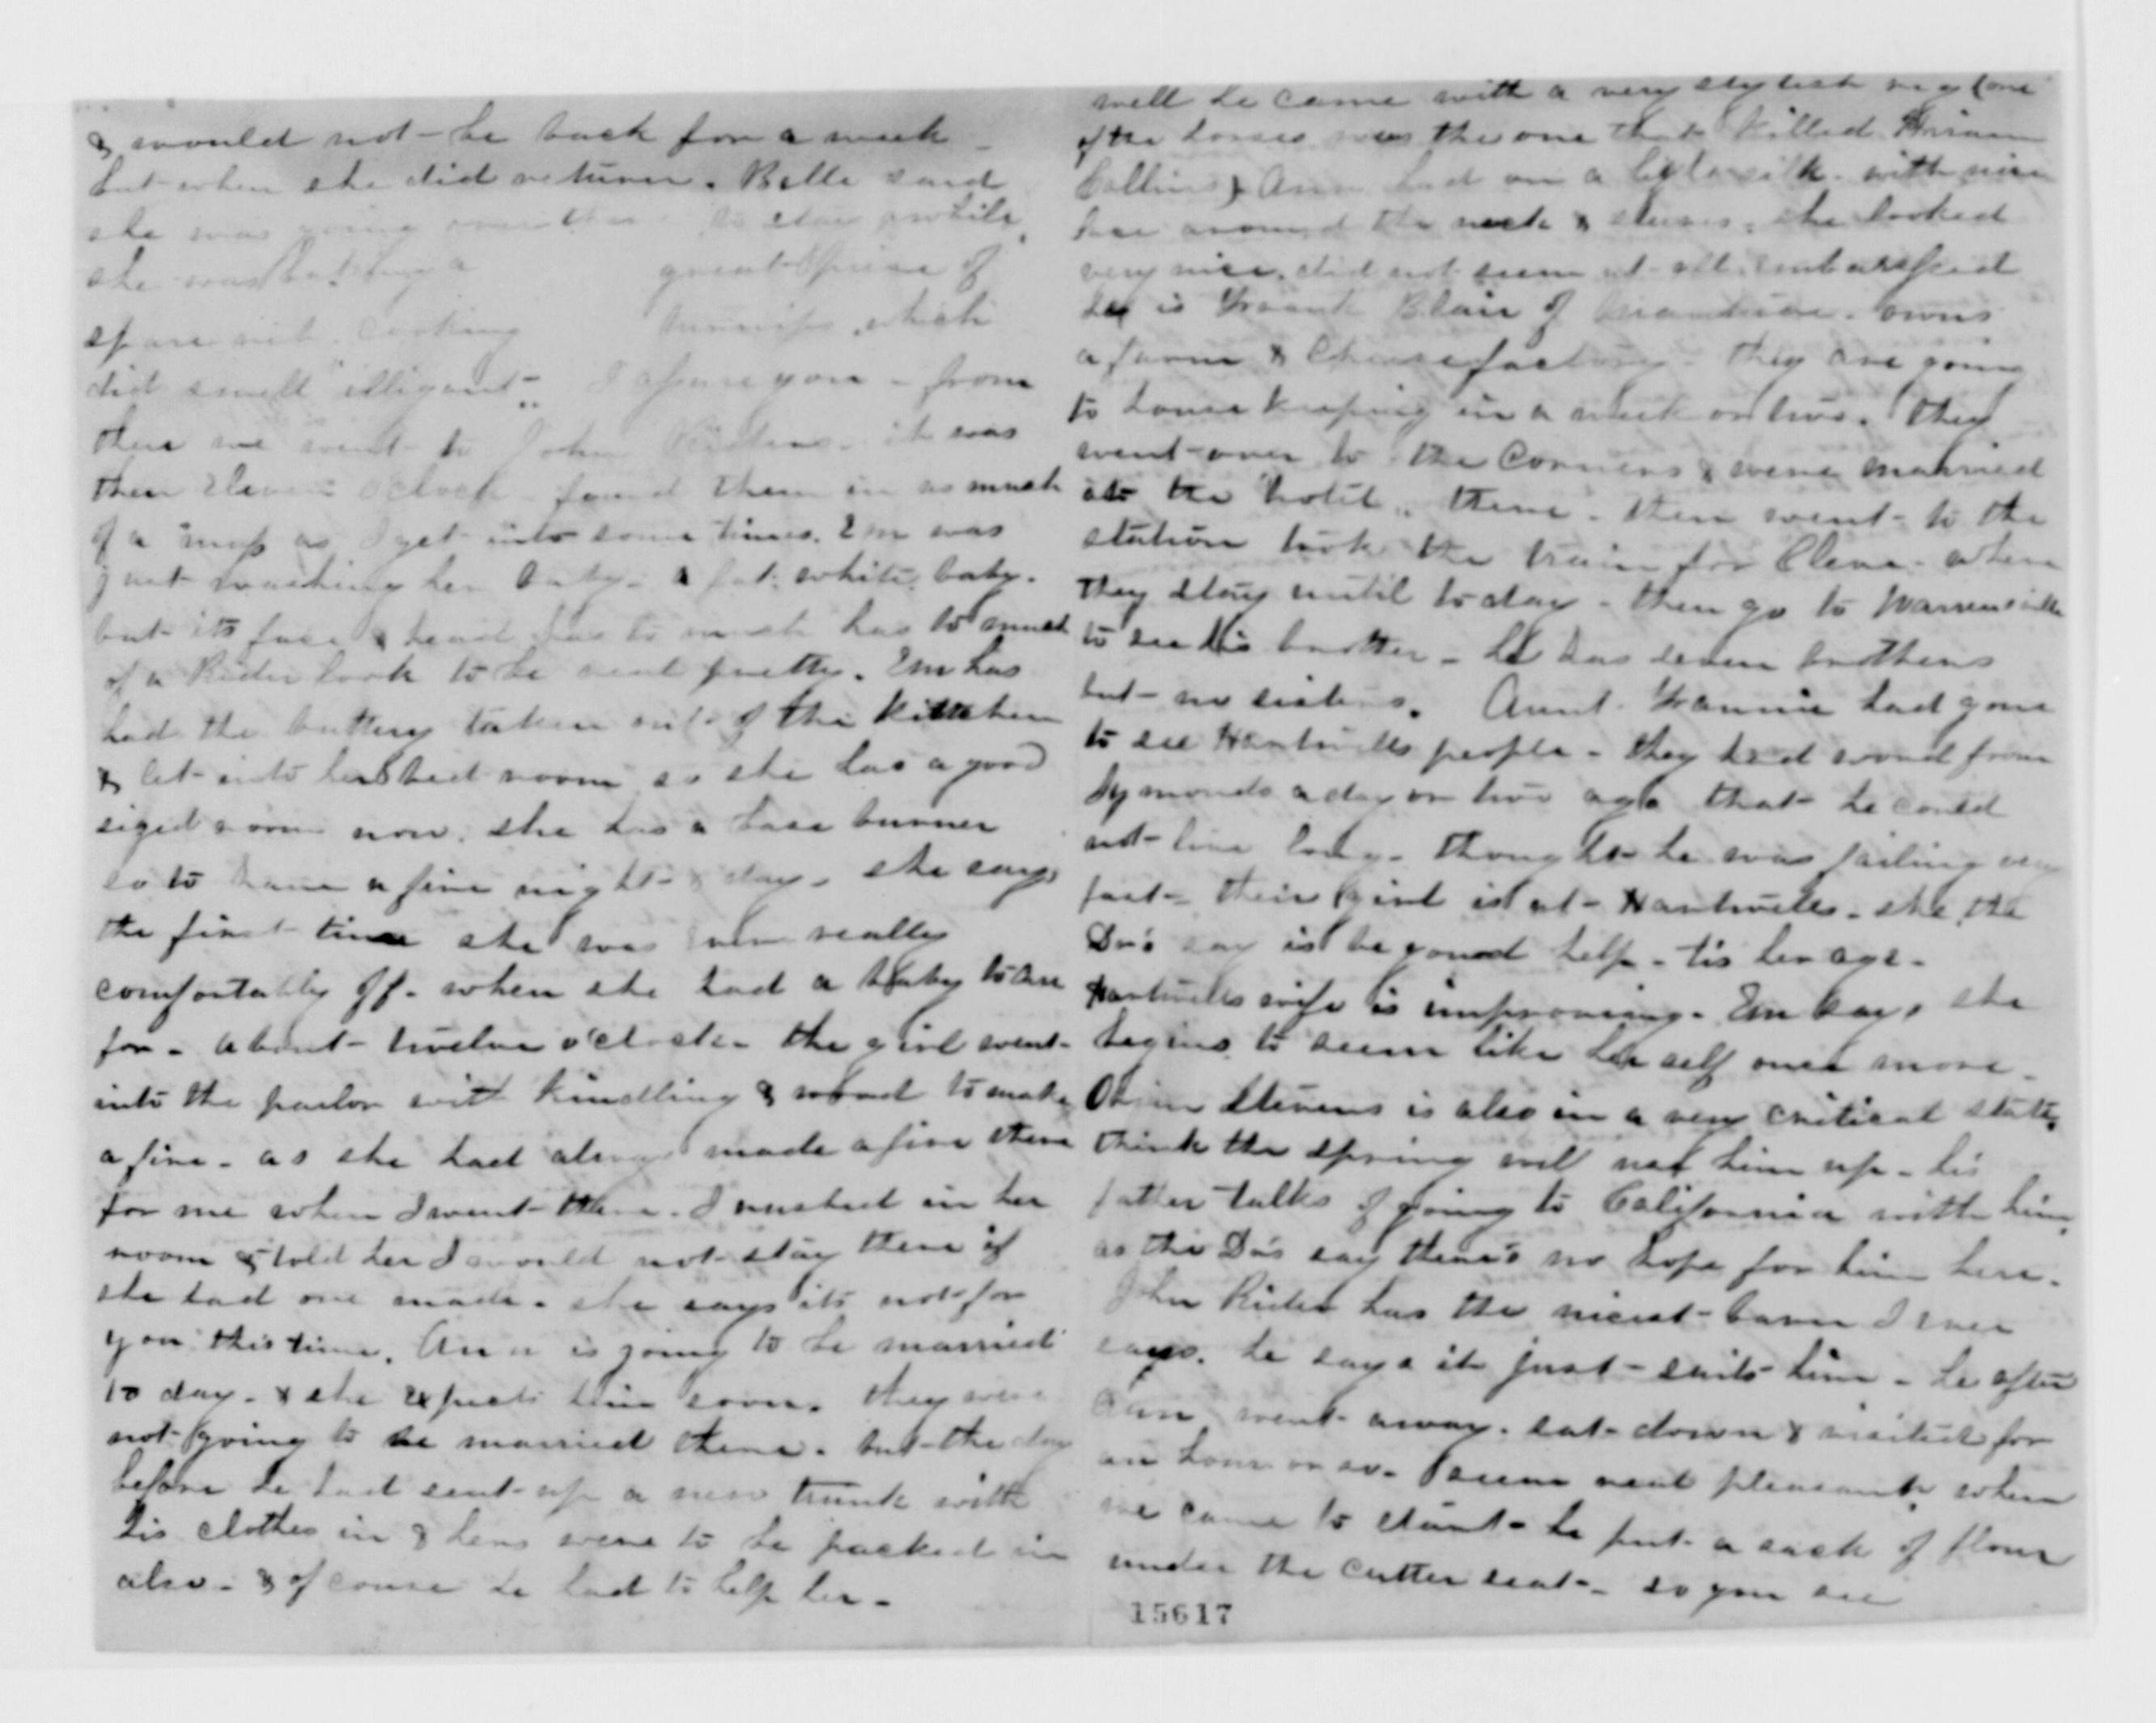 & would not be back for a week
but when she did return. Belle said
she was going over there to stay awhile,
she was a great piece of
spare rib. cooking turnips which
did smell "elligant" I assure you - from
there we went to John Riders. it was
then eleven oclock found them in as much
of a mess as I get into some times. Em was
just washing her baby - a fat, white, baby.
but its face & head has to much has to much
of a Rider look to be real pretty. Em has
had the buttery taken out of the kitchen
& let into her bed room so she has a good
sized room now. she has a base burner
so to have a fire night & day. she says
the first time she was ever really
comfortably off - when she had a baby to care
for - about twelve o'clock - the girl went
into the parlor with kindling & wood to make
a fire - as she had always made a fire there
for me when I went there. I rushed in her
room & told her I would not stay there if
she had one made - she says its not for
you this time. Ann is going to be married
to day - & she expects him soon. they were
not going to be married there. but the day
before he had sent up a new trunk with
his clothes in & hers were to be packed in
also - & of course he had to help her -
well he came with a very stylish rig (one
of the horses was the one that killed Hiram
Collins) Ann had on a silk. with nice
lace around the neck & sleeves, she looked
very nice. did not seem at all embarrassed
he is Frank Blair of owns
a farm & Cheese factory - They are going
to house keeping in a week or two. They
went over to the Corners & were married
at the hotel there - then went to the
station took the train for Cleve - where
they stay until to day - then go to Warrensville
to see his brother - he has seven brothers
but no sisters. Aunt Fannie had gone
to see Hartwells people - they had word from
Symonds a day or two ago that he could
not live long - thought he was failing very
fast - their girl is at Hartwells - she, the
Drs say is beyond help - tis her age -
Hartwells wife is improving - Em says she
begins to seem like her self once more -
Orrin Stevens is also in a very critical state,
think the spring will use him up - his
father talks of going to California with him,
as the Drs say there's no hope for him here -
John Rider has the nicest barn I ever
saw. he says it just suits him - he after
Ann went away. sat down & visited for
an hour or so - seem real pleasant, when
we came to start - he put a sack of flour
under the cutter seat - so you see
15617